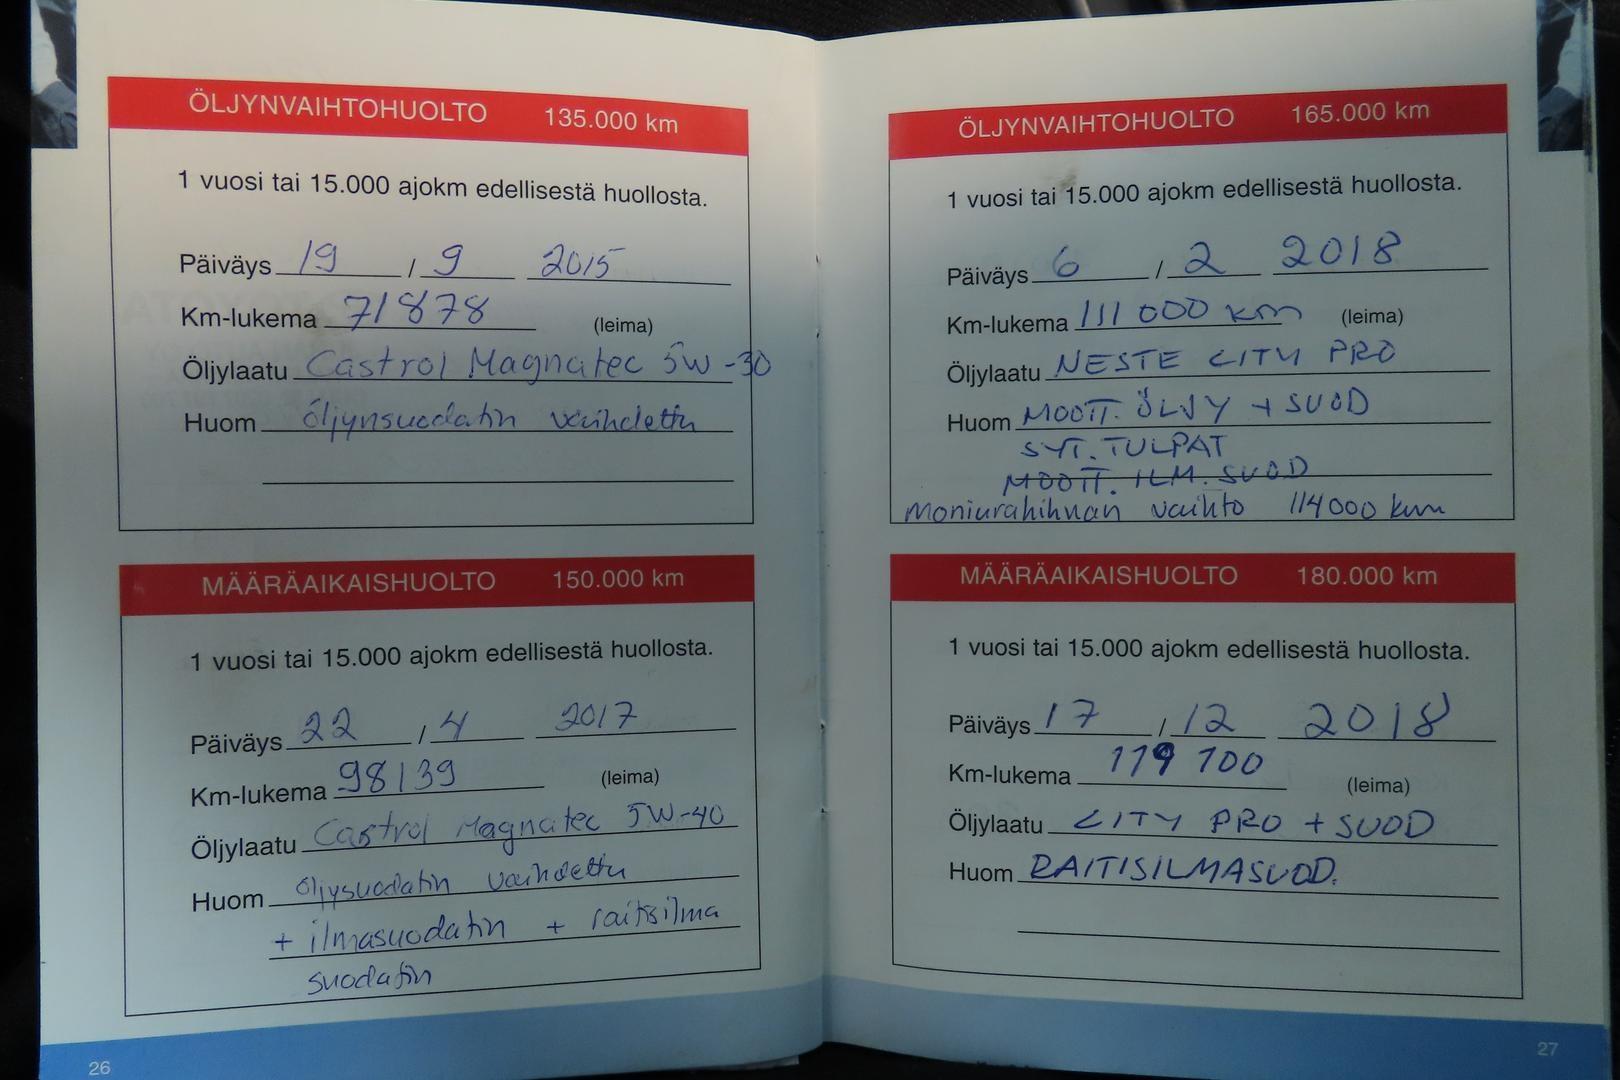 ÖLJYNVAIHTOHUOLTO 135.000 km
1 vuosi tai 15.000 ajokm edellisestä huollosta.
Päiväys 19 / 9 2015
Km-lukema 71878 (leima)
Öljylaatu Castrol Magnatec 5W-30
Huom öljynsuodatin vaihdettu
MÄÄRÄAIKAISHUOLTO 150.000 km
1 vuosi tai 15.000 ajokm edellisestä huollosta.
Päiväys 22 / 4 2017
Km-lukema 98139 (leima)
Öljylaatu Castrol Magnatec 5W-40
Huom öljysuodatin vaihdettu
+ ilmasuodatin + raitisilma
suodatin
26
ÖLJYNVAIHTOHUOLTO 165.000 km
1 vuosi tai 15.000 ajokm edellisestä huollosta.
Päiväys 6 / 2 2018
Km-lukema 111 000 km (leima)
Öljylaatu NESTE CITY PRO
Huom MOOTT. ÖLJY + SUOD
SYT. TULPAT
MOOTT. ILM. SUOD
Moniurahihnan vaihto 114000 km
MÄÄRÄAIKAISHUOLTO 180.000 km
1 vuosi tai 15.000 ajokm edellisestä huollosta.
Päiväys 17 / 12 2018
Km-lukema 119 700 (leima)
Öljylaatu CITY PRO + SUOD
Huom RAITISILMASUOD.
27